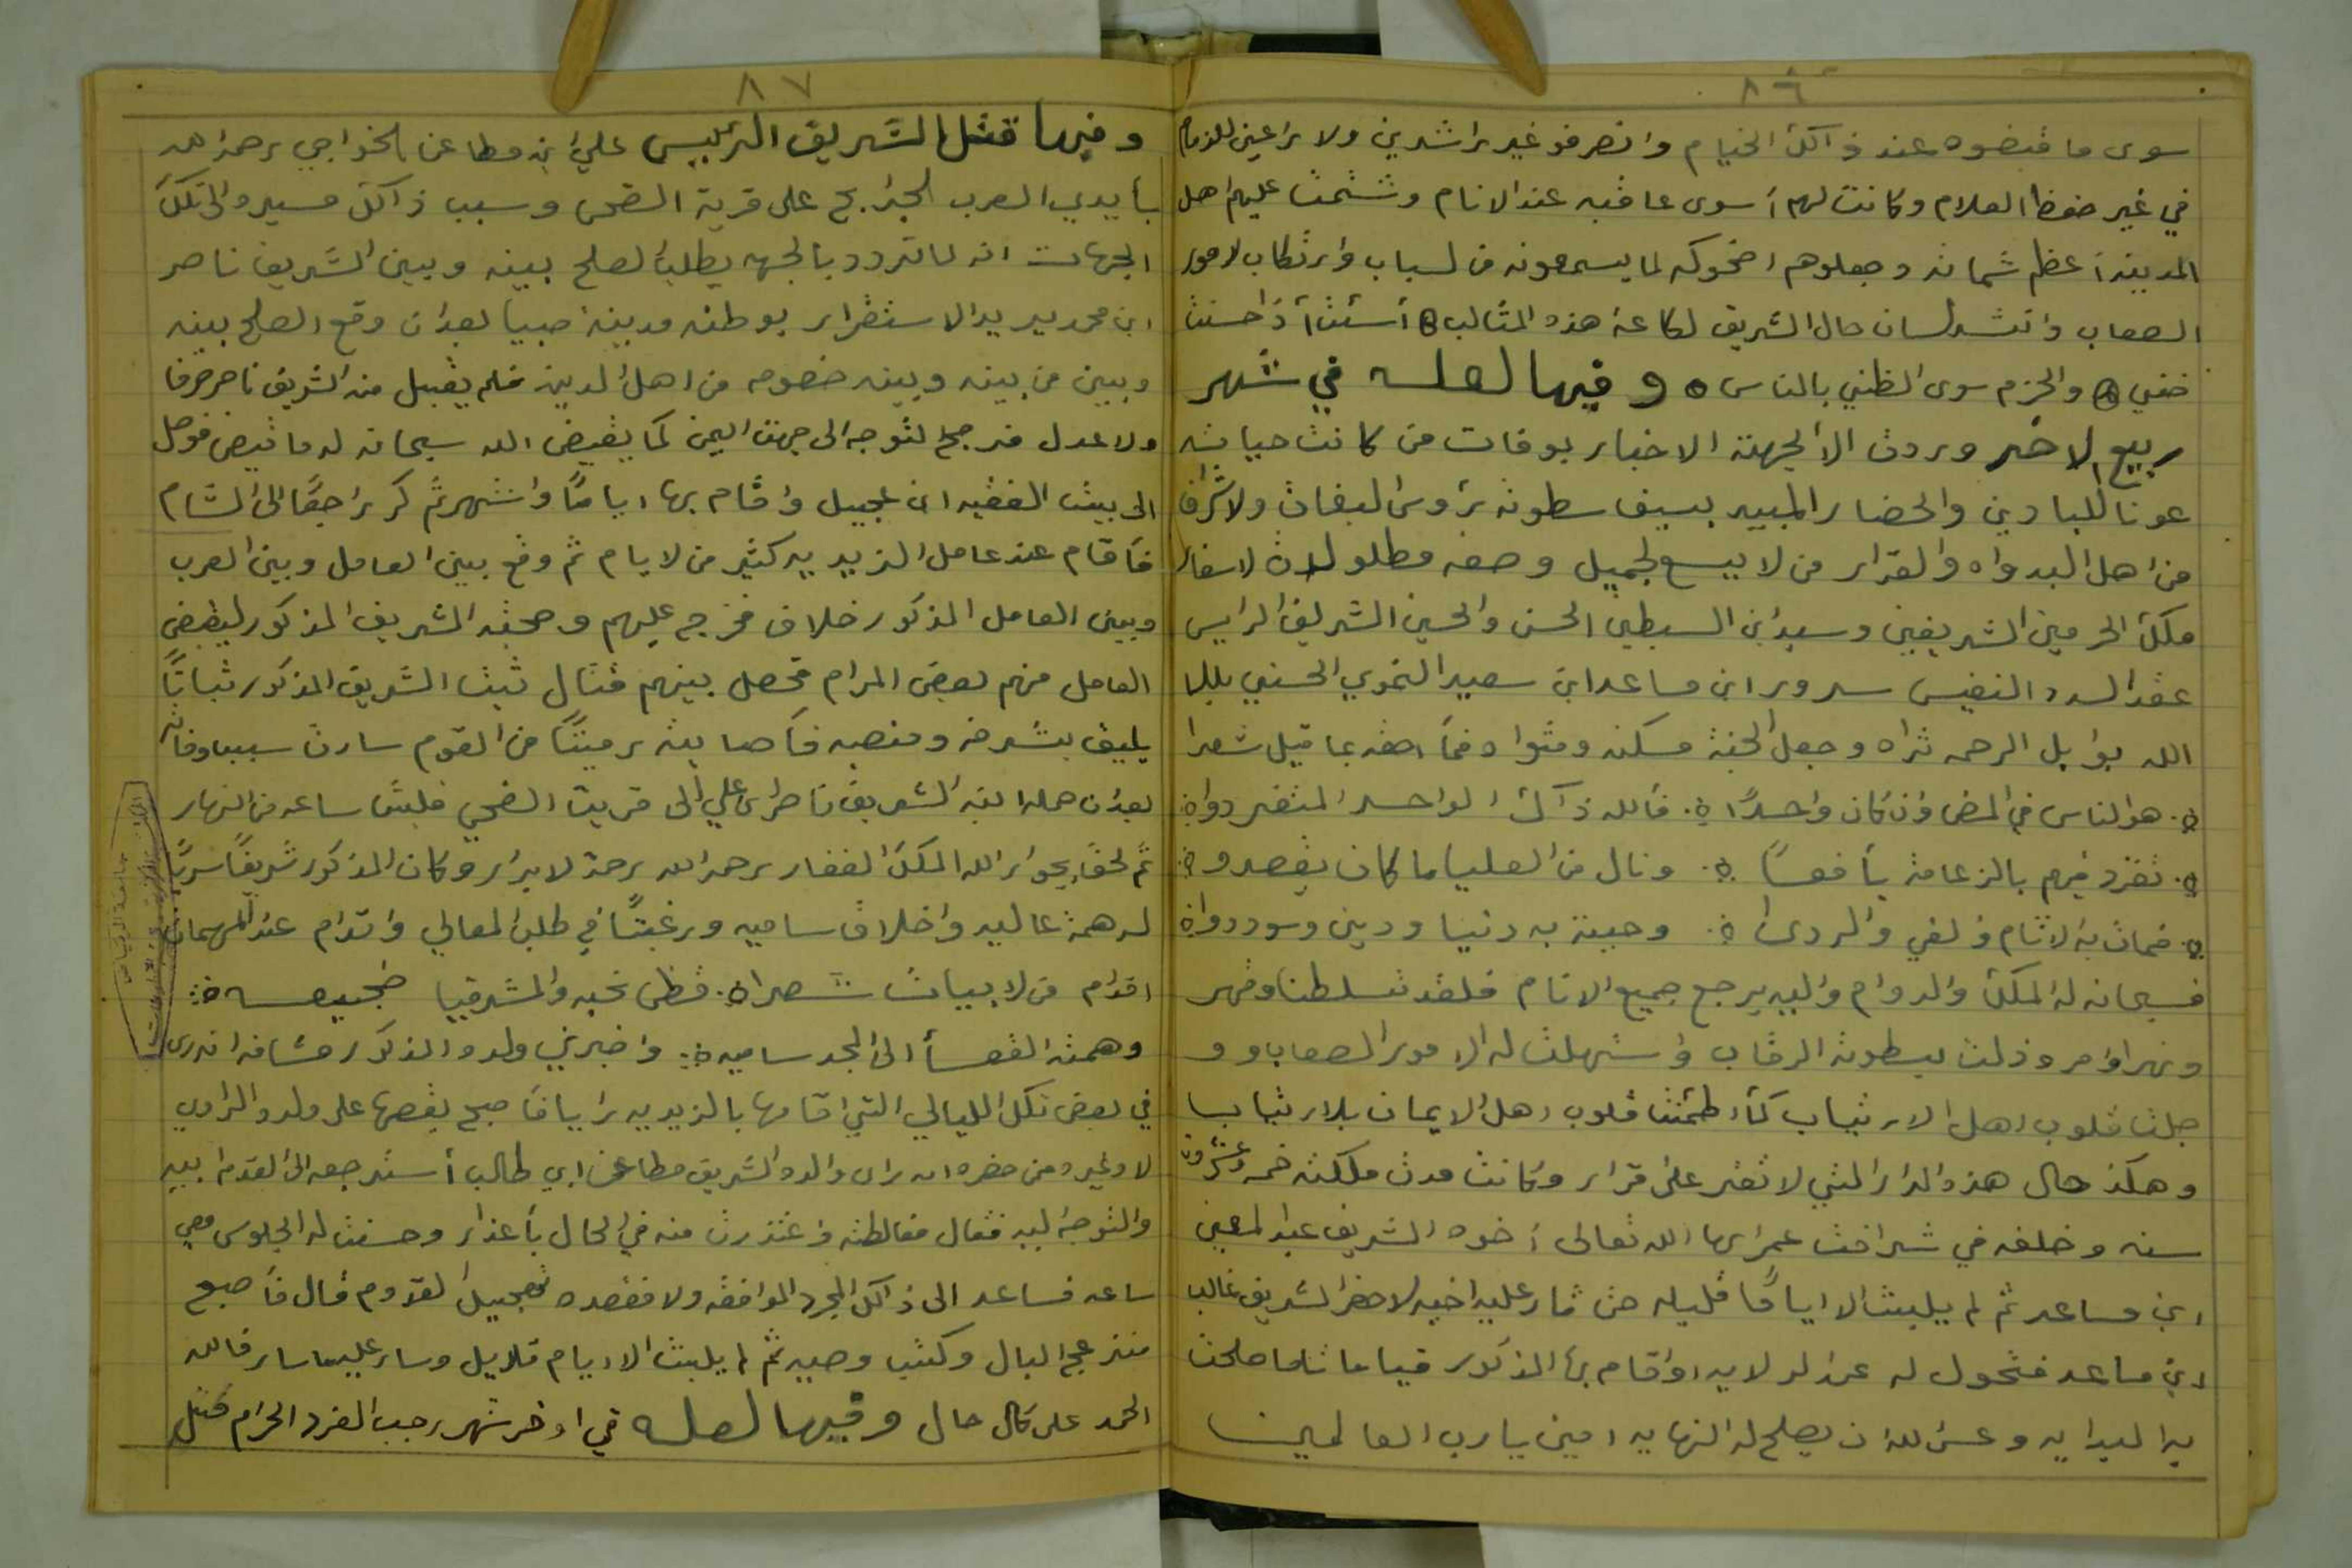 ٨٦
سوى ما قبضوه عند ذالك الخيام وانصرفو غير راشدين ولا راعين للذمام
في غير حفظ العلام وكانت لهم أسوى عاقبه عند الانام وشتمت عليهم اهل
المدينه أعظم شماته وجعلوهم اضحوكه لما يسمعونه من لسباب وارتكاب لامور
الصعاب وانشد لسان حال الشريف لكاعة هذه المثالب أسئت أذاحسنت
ضني والحزم سوى الظني بالناس ٥ وفيها لعله في شهر
ربيع الاخر وردت الا لجهته الاخبار بوفات من كانت حياته
عونا للبادين والحضار المبيد بسيف سطوته رؤس البغات ولاشراف
من اهل البدواه والقرار من لا يسع لجميل وصفه مطلولات لاسفار
ملك الحرمين الشريفين وسيد ابن السبطين الحسن والحسين الشريف الرايس
عقد السدد النفيس سرور ابن مساعد ابن سعيد النموي الحسني بللا
الله بوابل الرحمه ثراه وجعل الجنة مسكنه ومثواه فما اصفه بما قيل شعرا
هو الناس في المضا وان كان واحدًا فالله ذاك الواحد المتفردواة
تفرد فيهم بالزعامة يافعسًا ونال من العليا ما كان يقصدو
فمات به الاثام ولغي والردى وحيية به دنيا ودين وسوددواة
فسبحانه له الملك والدوام واليه يرجع جميع الانام فلقد تسلطنا وقهر
ونهى وامر وذلت بسطوته الرقاب واستهلت له الامور الصعاب و و
جلت قلوب اهل الارتياب كأ اطمئنت قلوب اهل الايمان بلارتيابا
وهكذ حال هذه الدار التي لا تقر على قرار وكانت مدت ملكته خمسه وعشرون
سنه وخلفه في شرافت عمرايها الله تعالى أخوه الشريف عبد المعين
ابن مساعد ثم لم يلبث الا اياما قليله حتى ثار عليه اخيه لاخر الشريف غالب
ابن مساعد فتحول له عن الولايه واقام بها المذكور قياما تاما صلحت
به البدايه وعسى الله ان يصلح له النهايه امين يارب العالمين
٨٧
وفيها قتل الشريف الرئيس علي ابن مطاعن الخواجي رحمه الله
بأيدي العرب الجرابح على قرية الضحى وسبب ذالك مسيره الى تلك
الجهات انه لما تردد بالجهه يطلب الصلح بينه وبين الشريف ناصر
ابن محمد يريد الاستقرار بوطنه مدينة صبيا بعد ان وقع الصلح بينه
وبين من بينه وبينه خصومه من اهل المدينه فلم يقبل منه الشريف ناصر صرفا
ولا عدل فرجح لتوجه الى جهت اليمن كما يقيض الله سبحانه له ما قيض فوصل
الى بيت الفقيه ابن عجيل واقام بها ايامًا واشهر ثم كر راجعًا الى الشام
فأقام عند عامل الزيديه كثير من لايام ثم وقع بين العامل وبين العرب
وبين العامل المذكور خلاف فخرج عليهم وصحبه الشريف المذكور ليقبض
العامل منهم بعض المرام فحصل بينهم قتال ثبت الشريف المذكور ثباتًا
يليق بشرفه ومنصبه فأصابته رميتًا من القوم سارت سببا وفاته
بعد ان حمله ابنه الشريف ناصر ابن علي الى قريت الضحي فلبث ساعه من النهار
ثم لحق بجوار الله الملك الغفار رحمه الله رحمة لابرار وكان المذكور شريفًا سريًا
له همة عاليه واخلاق ساميه ورغبتًا في طلب المعالي واقدام عند المهمات
اقدام من لابيات شعراة فظى نحبه والمشرفيا ضجيعه
وهمته القعسأ الى المجد ساميه واخبرني ولده المذكور مشافه انه رى
في بعض تلك الليالي التي اقامها بالزيديه رايا فاصبح يقصها على ولده الراوي
لا وغيره ومن حضره انه راى والده الشريف مطاعن ابن ابي طالب أستدرجعه الى القدم اليه
والتوجه اليه فقال مغالطته واعتذرت منه في الحال بأعذار وحسنت له الجلوس معي
ساعه فساعد الى ذالك المجرد الموافقه ولا فقصده تعجيل القدوم قال فأصبح
منزعج البال وكتب وصيه ثم لم يلبث الا ايام قلايل وسار عليه ما سار فالله
الحمد على كال حال وفيها لعله في اوخر شهر رجب الفرد الحرام قتل